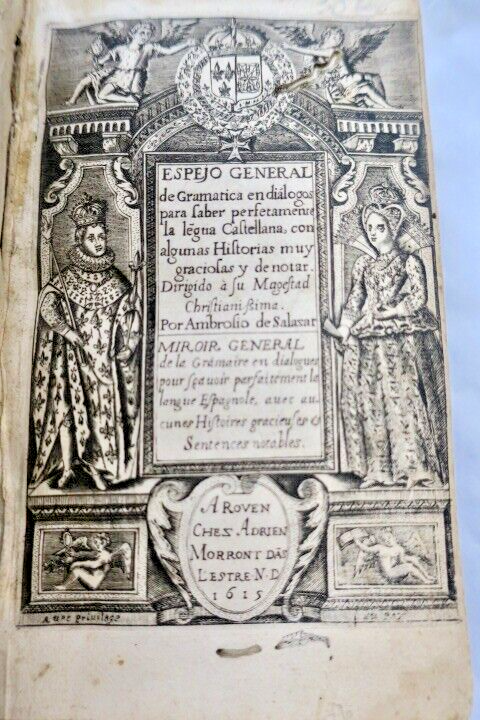 ESPEJO GENERAL
de Gramatica en diálogos
para saber perfetamente
la lēgua Castellana, con
algunas Historias muy
graciosas y de notar.
Dirigido à su Magestad
Christianissima.
Por Ambrosio de Salazar
MIROIR GENERAL
de la Grãmaire en dialogues
pour sçavoir parfaitement la
langue Espagnole, avec au-
cunes Histoires gracieuses &
Sentences notables.
A ROVEN
CHEZ ADRIEN
MORRONT DĀS
L'ESTRE N·D
1615